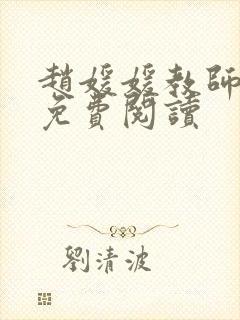 趙媛媛教師
免費閱讀
劉清波